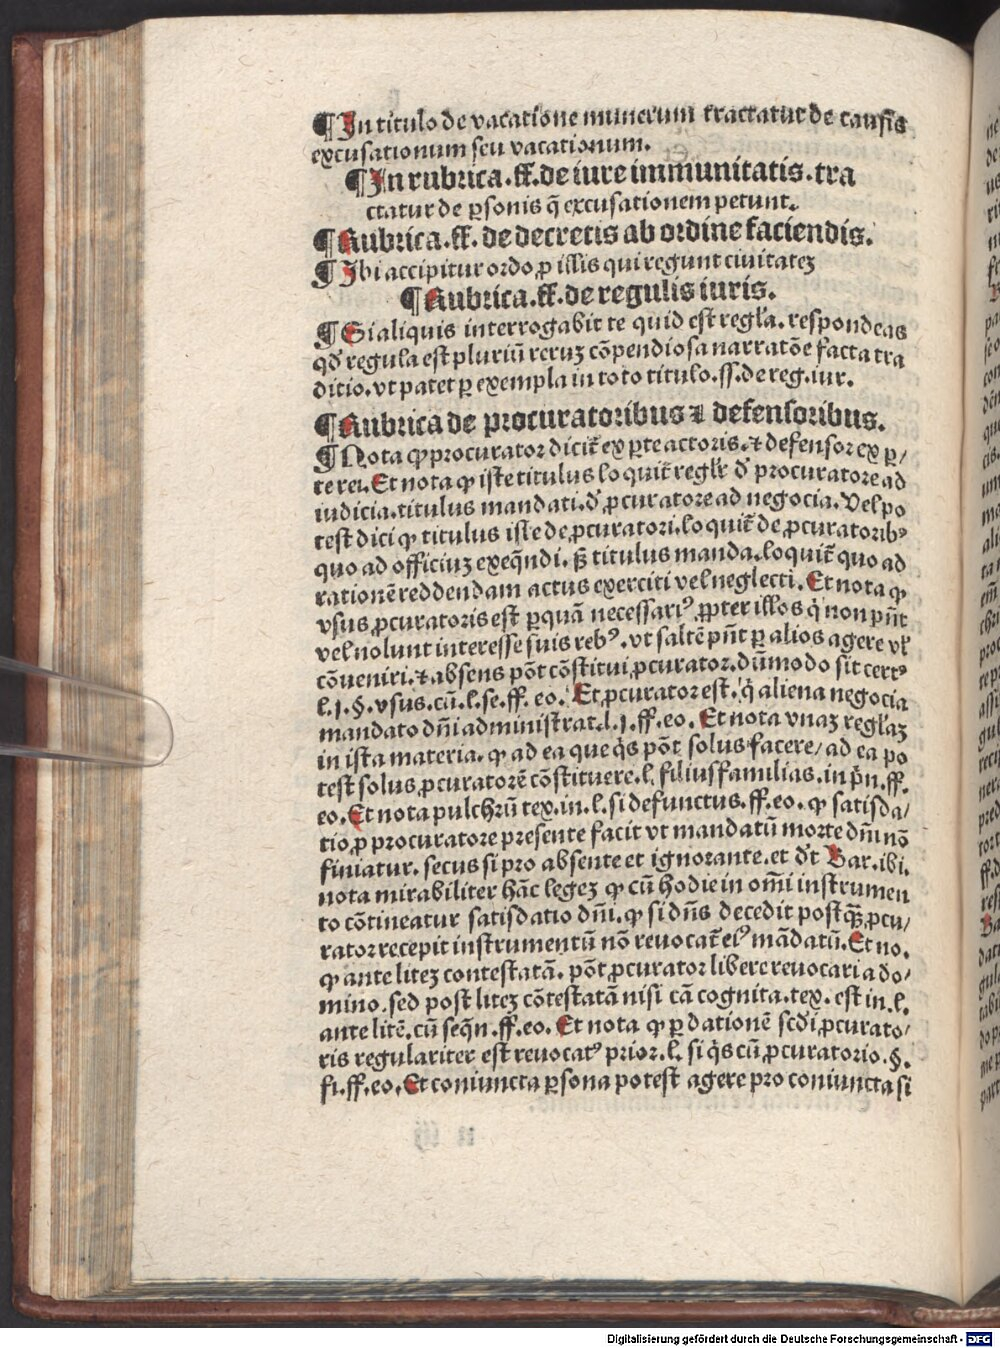 ¶ In titulo de vacatione munerum tractatur de causis
excusationum seu vacationum.
¶ In rubrica .ff. de iure immunitatis. tra
ctatur de ꝑsonis q̄ excusationem petunt.
¶ Rubrica .ff. de decretis ab ordine faciendis.
¶ Ibi accipitur ordo ꝓ illis qui regunt ciuitatez
¶ Rubrica .ff. de regulis iuris.
¶ Si aliquis interrogabit te quid est regl'a. respondeas
qd' regula est pluriū reruz cōpendiosa narratōe facta tra
ditio. vt patet ꝑ exempla in toto titulo .ff. de reg. iur.
¶ Rubrica de procuratoribus ⁊ defensoribus.
¶ Nota ꝙ procurator dicit̄ ex ꝑte actoris. ⁊ defensor ex ꝑ/
te rei. Et nota ꝙ iste titulus loquit̄ regl'r d' procuratore ad
iudicia. titulus mandati. d' ꝓcuratore ad negocia. Vel po
test dici ꝙ titulus iste de ꝓcuratori. loquit̄ de ꝓcuratoribꝰ
quo ad officiuz exeq̄ndi. ß titulus manda. loquit̄ quo ad
rationē reddendam actus exerciti vel neglecti. Et nota ꝙ
vsus ꝓcuratoris est ꝑquā necessariꝰ ꝓpter illos q' non pn̄t
vel nolunt interesse suis rebꝰ. vt saltē pn̄t ꝑ alios agere vl'
cōueniri. ⁊ absens pōt cōstitui ꝓcurator. dūmodo sit certꝰ
l. j. §. vsus. cū. l. se. ff. eo. Et ꝓcurator est. q' aliena negocia
mandato dn̄i administrat. l. j. ff. eo. Et nota vnaz regl'az
in ista materia. ꝙ ad ea que q's pōt solus facere/ ad ea po
test solus ꝓcuratorē cōstituere. l. filiusfamilias. in p̄n. ff.
eo. Et nota pulchrū tex. in. l. si defunctus. ff. eo. ꝙ satisda/
tio ꝓ procuratore presente facit vt mandatū morte dn̄i nō
finiatur. secus si pro absente et ignorante. et d't Bar. ibi.
nota mirabiliter hāc legez ꝙ cū hodie in om̄i instrumen
to cōtineatur satisdatio dn̄i. ꝙ si dn̄s decedit postq̄ꝫ ꝓcu/
rator recepit instrumentū nō reuocat̄ eiꝰ mādatū. Et no.
ꝙ ante litez contestatā. pōt ꝓcurator libere reuocari a do/
mino. sed post litez cōtestatā nisi cā cognita. tex. est in. l.
ante litē. cū seq̄n. ff. eo. Et nota ꝙ ꝑ dationē scd'i ꝓcurato/
ris regulariter est reuocatꝰ prior. l. si q's cū ꝓcuratorio. §.
fi. ff. eo. Et coniuncta ꝑsona potest agere pro coniuncta si
Digitalisierung gefördert durch die Deutsche Forschungsgemeinschaft - DFG